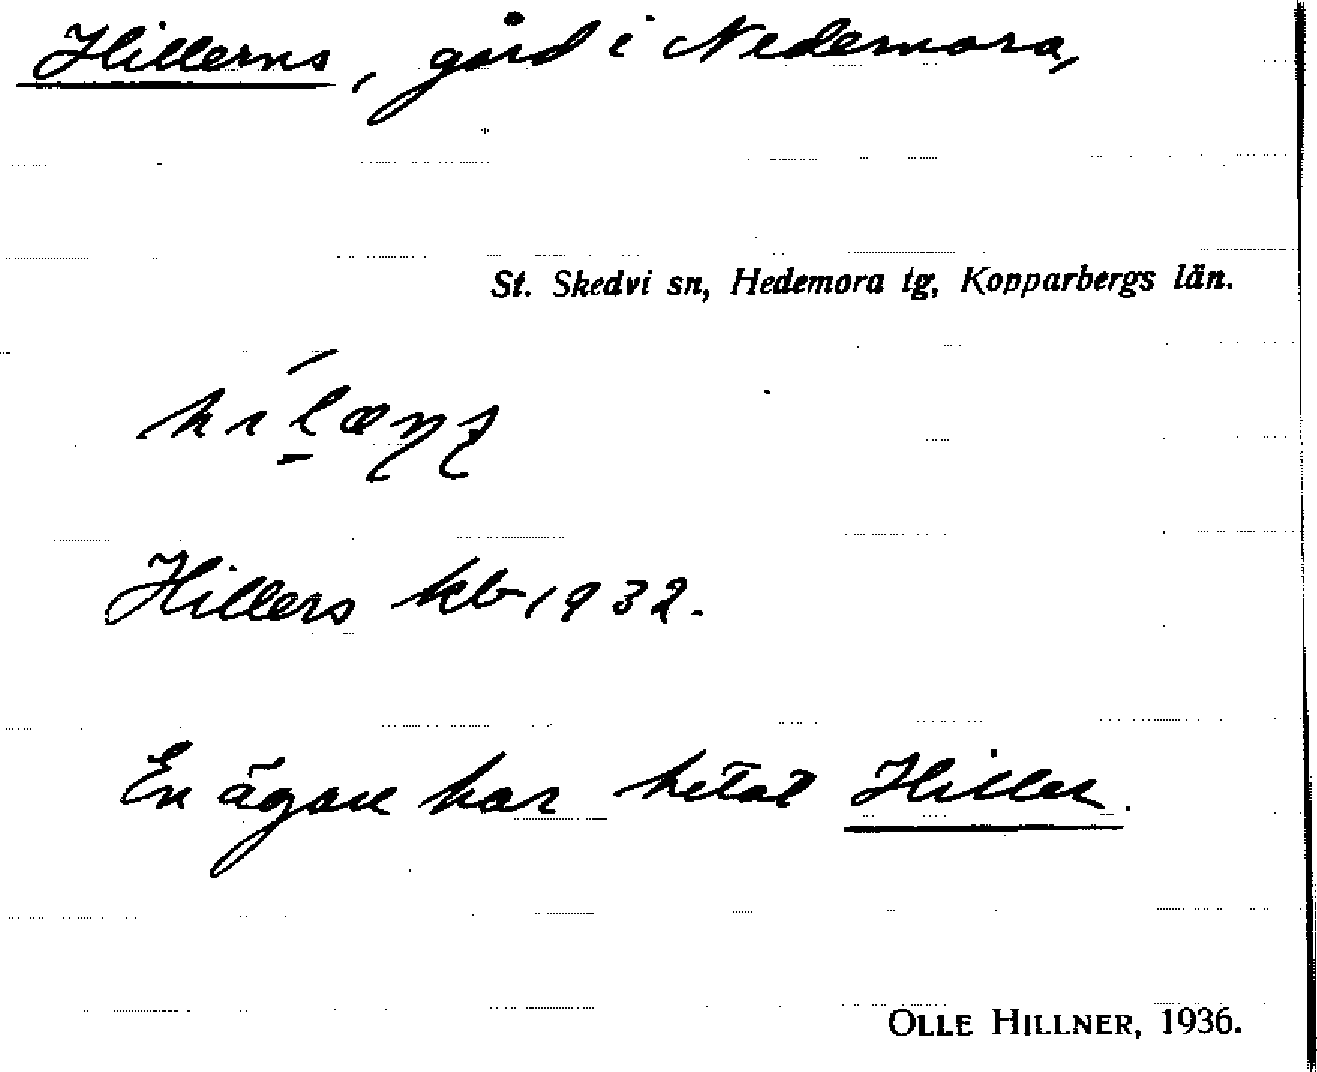 Hillerns, gård i Nedernora,
St. Skedvi sn, Hedemora tg, Kopparbergs län.
Hillers kb 1932.
En ägare har hetat Hiller.
OLLE HILLNER, 1936.